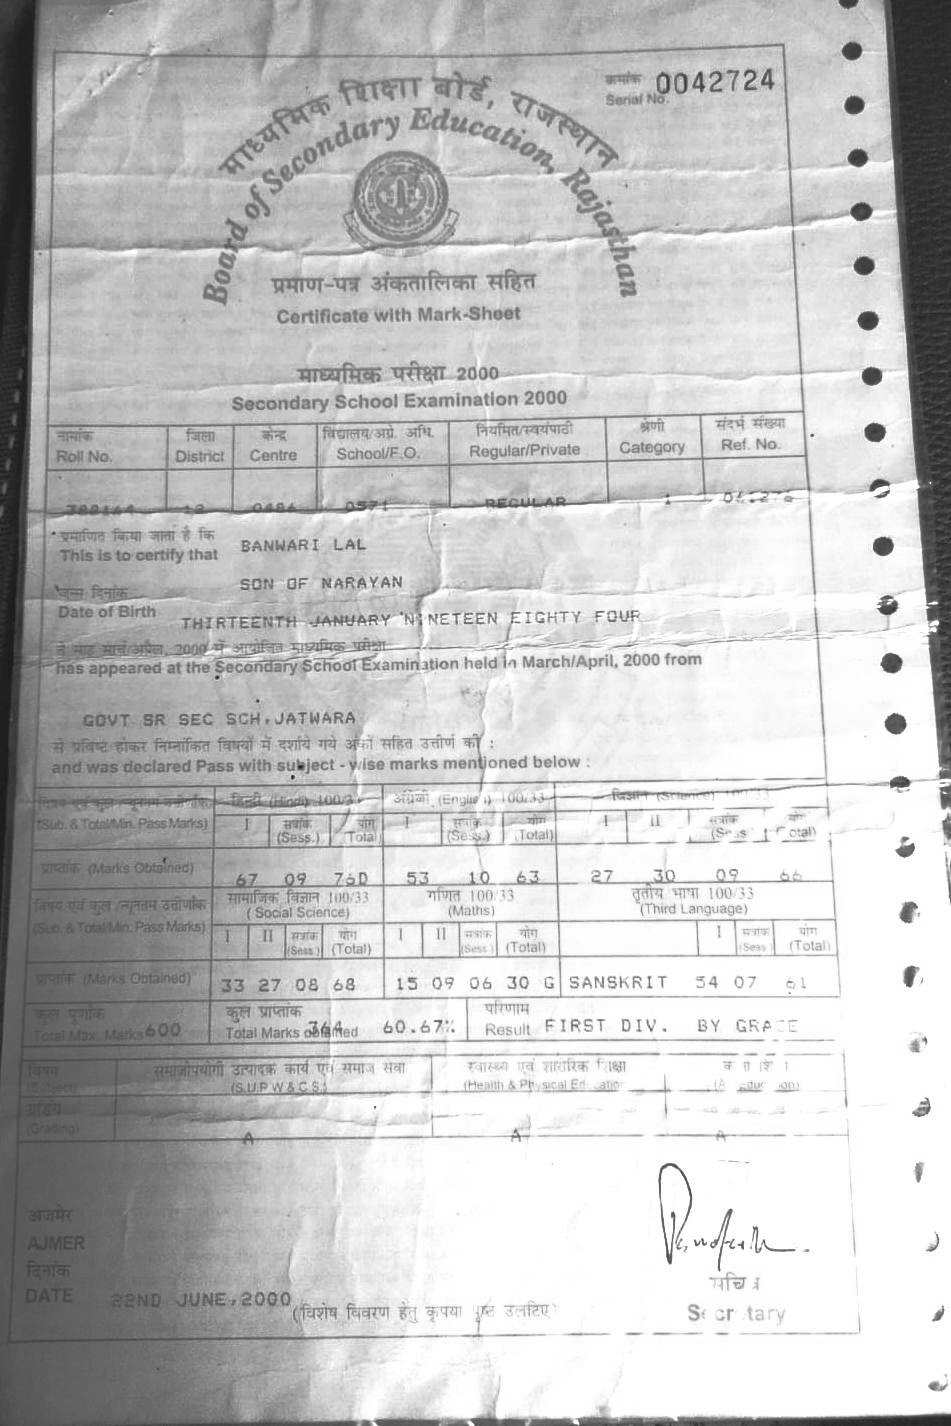 क्रमांक 0042724
Serial No.
माध्यमिक शिक्षा बोर्ड, राजस्थान
Board of Secondary Education, Rajasthan
प्रमाण-पत्र अंकतालिका सहित
Certificate with Mark-Sheet
माध्यमिक परीक्षा 2000
Secondary School Examination 2000
नामांक जिला केन्द्र विद्यालय/अग्रे. अधि. नियमित/स्वयंपाठी श्रेणी संदर्भ संख्या
Roll No. District Centre School/F.O. Regular/Private Category Ref. No.
0484 0571 REGULAR 1
प्रमाणित किया जाता है कि
This is to certify that BANWARI LAL
SON OF NARAYAN
जन्म दिनांक
Date of Birth THIRTEENTH JANUARY NINETEEN EIGHTY FOUR
ने माह मार्च/अप्रैल, 2000 में आयोजित माध्यमिक परीक्षा
has appeared at the Secondary School Examination held in March/April, 2000 from
GOVT SR SEC SCH,JATWARA
से प्रविष्ट होकर निम्नांकित विषयों में दर्शाये गये अंकों सहित उत्तीर्ण की :
and was declared Pass with subject - wise marks mentioned below :
विषय एवं कुल /न्यूनतम उत्तीर्णांक हिन्दी (Hindi) 100/33 अंग्रेजी (English) 100/33 विज्ञान (Science) 100/33
(Sub. & Total/Min. Pass Marks) I सत्रांक योग I सत्रांक योग I II सत्रांक योग
(Sess.) (Total) (Sess.) (Total) (Sess (Total)
प्राप्तांक (Marks Obtained) 67 09 76D 53 10 63 27 30 09 66
विषय एवं कुल /न्यूनतम उत्तीर्णांक सामाजिक विज्ञान 100/33 गणित 100/33 तृतीय भाषा 100/33
( Social Science) (Maths) (Third Language)
(Sub. & Total/Min. Pass Marks) I II सत्रांक योग I II सत्रांक योग I सत्रांक योग
(Sess.) (Total) (Sess.) (Total) (Sess.) (Total)
प्राप्तांक (Marks Obtained) 33 27 08 68 15 09 06 30 G SANSKRIT 54 07 61
कुल पूर्णांक कुल प्राप्तांक परिणाम
Total Max. Marks 600 Total Marks obtained 364 60.67% Result FIRST DIV. BY GRACE
विषय समाजोपयोगी उत्पादक कार्य एवं समाज सेवा स्वास्थ्य एवं शारीरिक शिक्षा
(Subject) (S.U.P.W & C.S.) (Health & Physical Education
ग्रेडिंग
(Grading)
A A A
अजमेर
AJMER
दिनांक
DATE 22ND JUNE,2000
(विशेष विवरण हेतु कृपया पृष्ठ उलटिए)
सचिव
Secretary